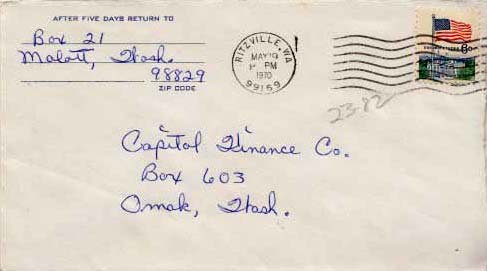 AFTER FIVE DAYS RETURN TO
Box 21
Malott, Wash.
98829
ZIP CODE
RITZVILLE, WA
MAY 19
PM
1970
99169
6c
23-82
Capital Finance Co.
Box 603
Omak, Wash.